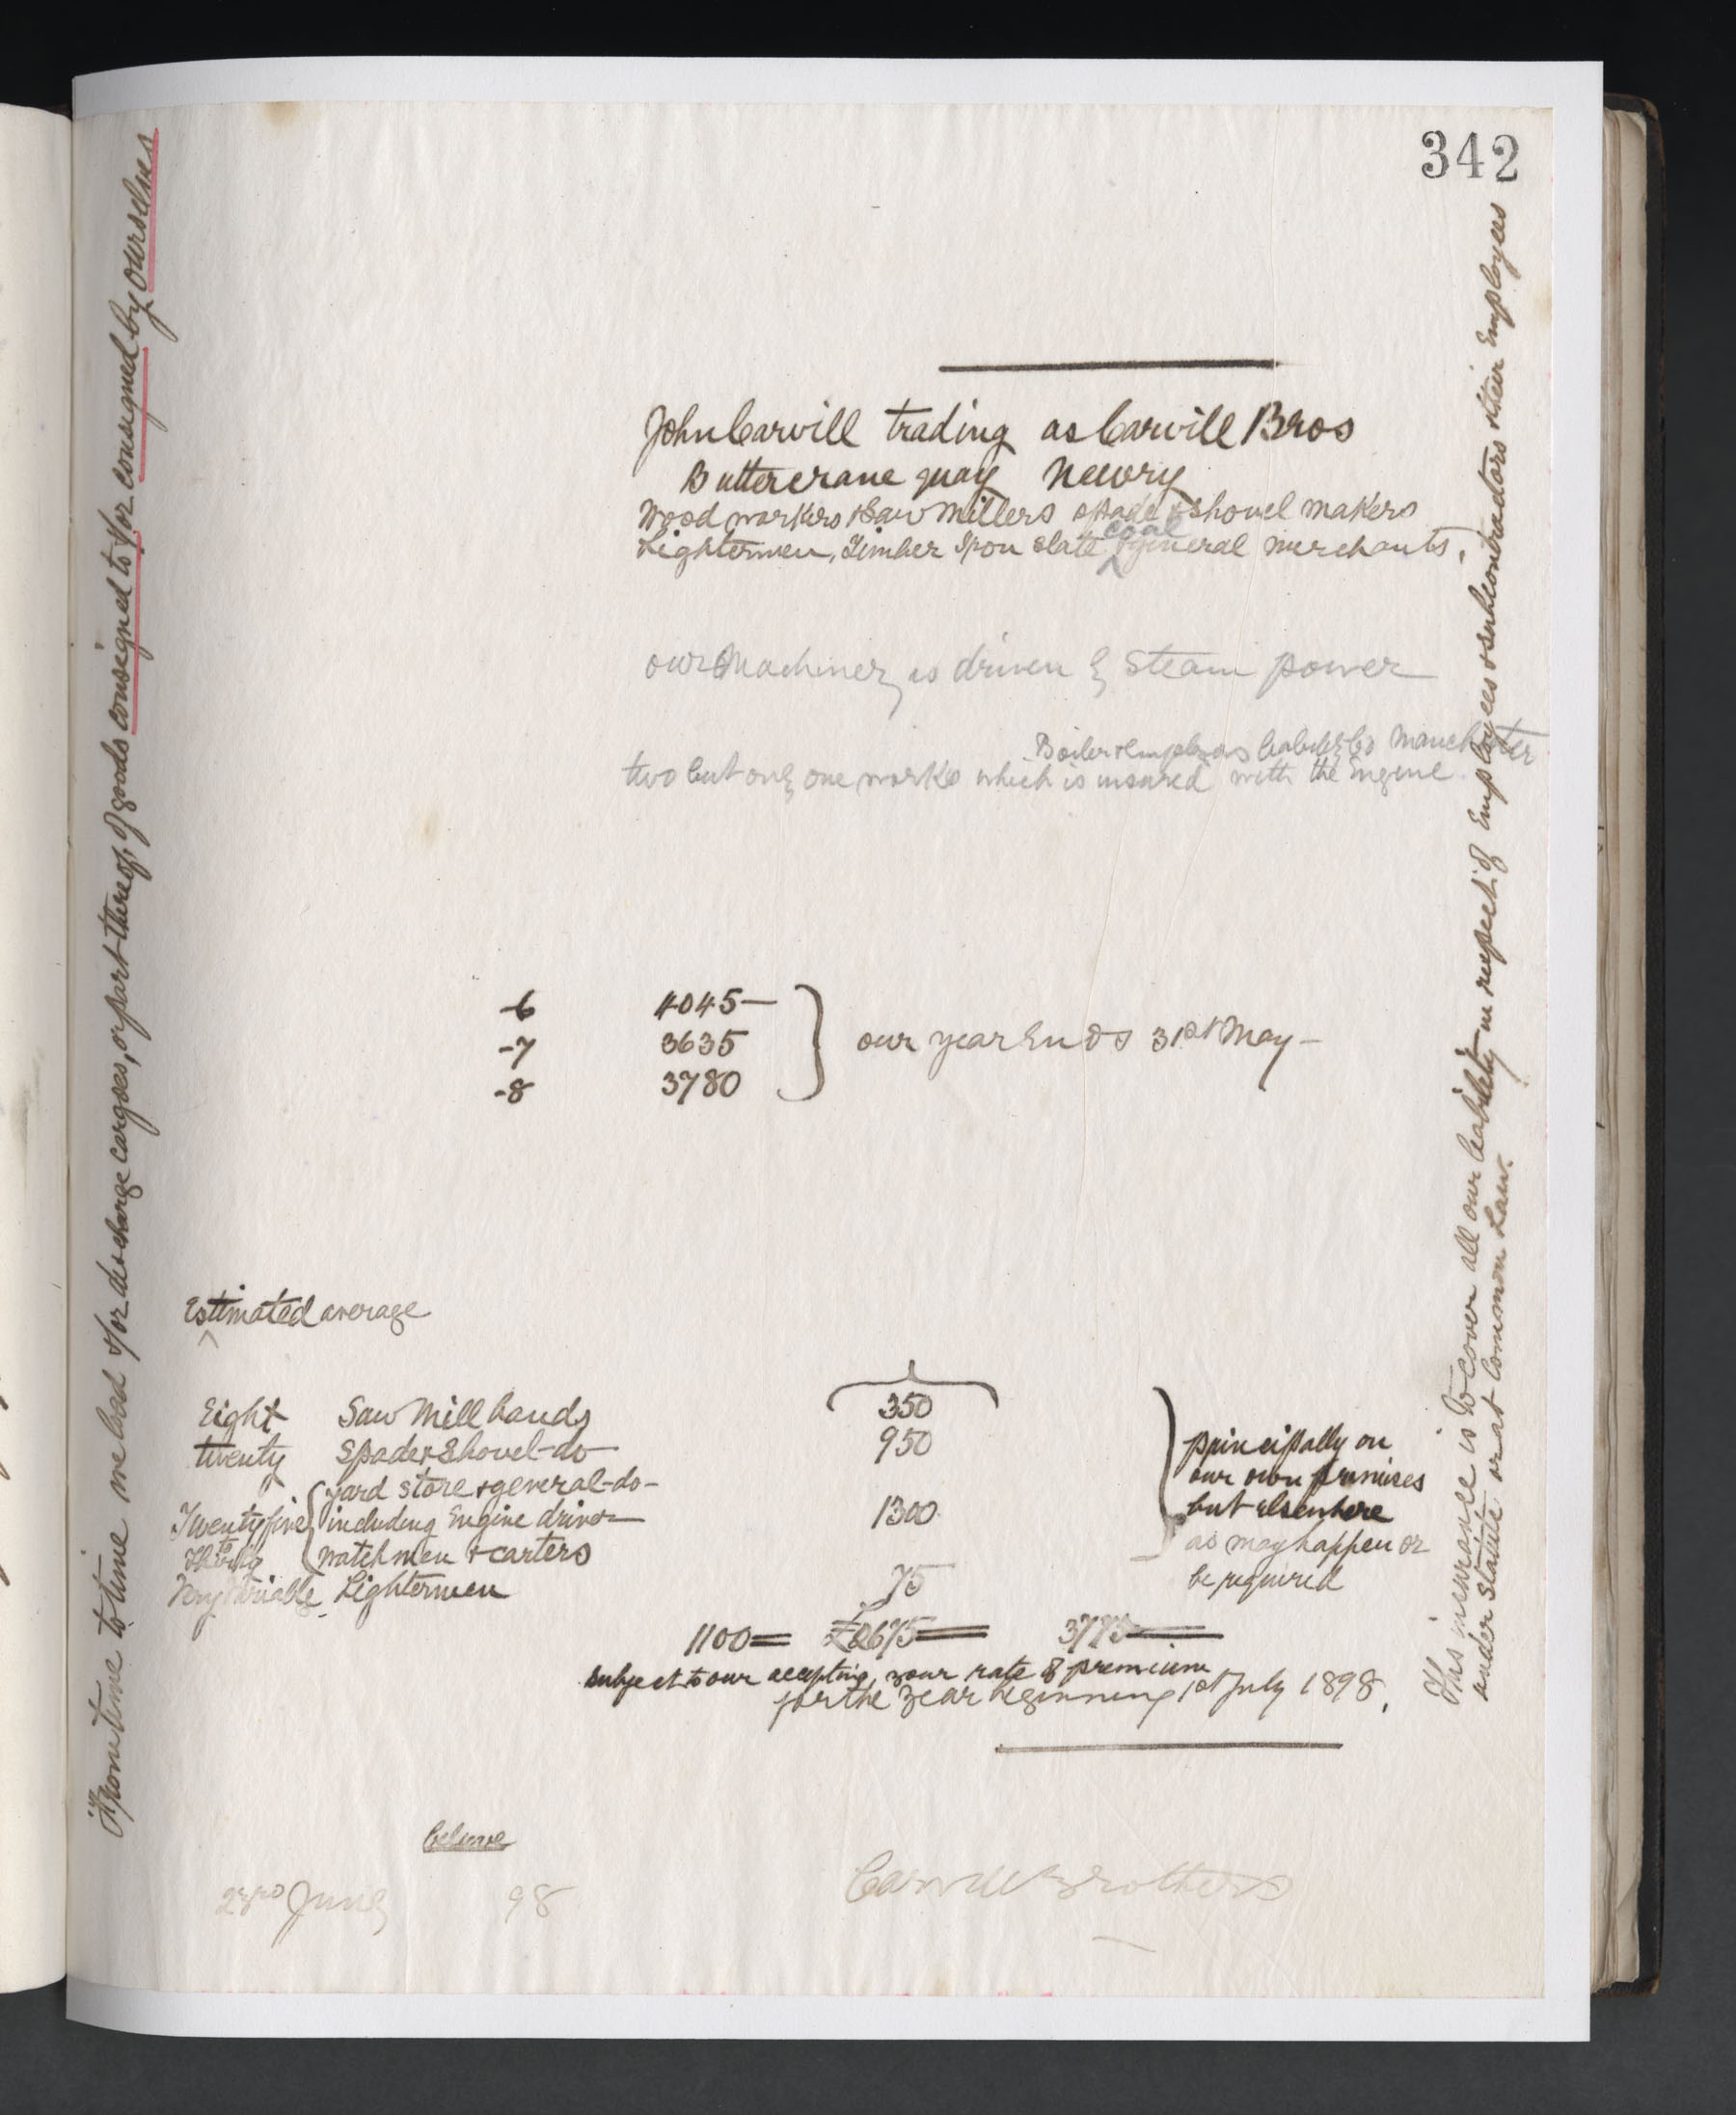 342
John Carvill trading as Carvill Bros
Buttercrane quay Newry
Wood workers & Saw Millers spade & shovel makers
Lightermen, Timber Iron slate coal & general merchants.
our Machinery is driven by steam power
Boiler & employers liability Co Manchester
two but only one works which is insured with the Engine
-6 4045—
-7 3635
-8 3780
our year ends 31st May—
Estimated average
Eight Saw Mill hands 350
twenty Spade & Shovel-do- 950
yard store & general-do-
Twenty five including Engine driver 1300
to Thirty watchmen & carters
Very variable Lightermen 75
principally on
our own premises
but elsewhere
as may happen or
be required
1100= £2675= 3775=
subject to our accepting your rate of premium
for the year beginning 1st July 1898.
23rd June 98 Carvill Brothers
From time to time we load &/or discharge cargoes, or part thereof, of goods consigned to &/or consigned by ourselves
This insurance is to cover all our liability in respect of Employees & subcontractors & their Employees
under Statute or at Common Law.